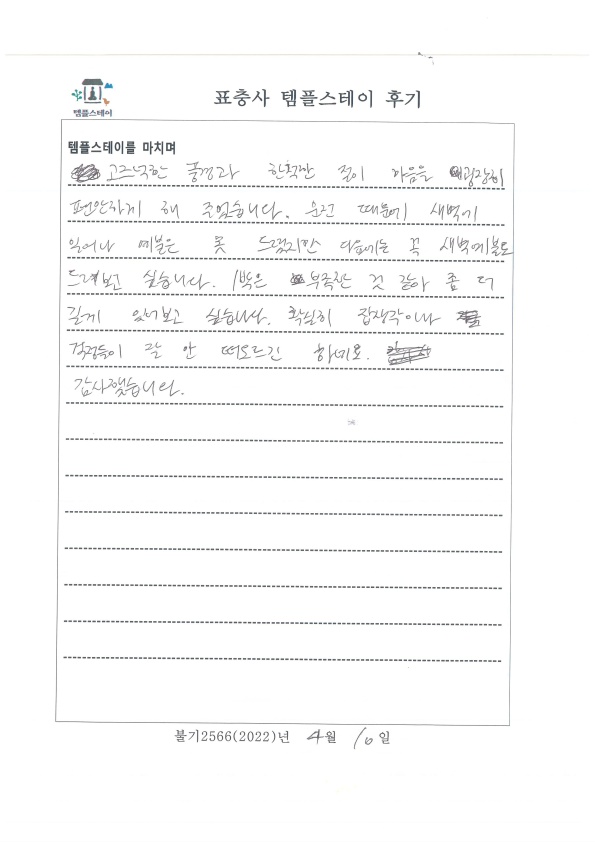 템플스테이
표충사 템플스테이 후기
템플스테이를 마치며
고즈넉한 풍경과 한적한 절이 마음을 굉장히
편안하게 해 주었습니다. 운전 때문에 새벽에
일어나 예불은 못 드렸지만 다음에는 꼭 새벽예불도
드려보고 싶습니다. 1박은 부족한 것 같아 좀 더
길게 있어보고 싶습니다. 확실히 잡생각이나
걱정들이 잘 안 떠오르긴 하네요.
감사했습니다.
불기2566(2022)년 4월 10일